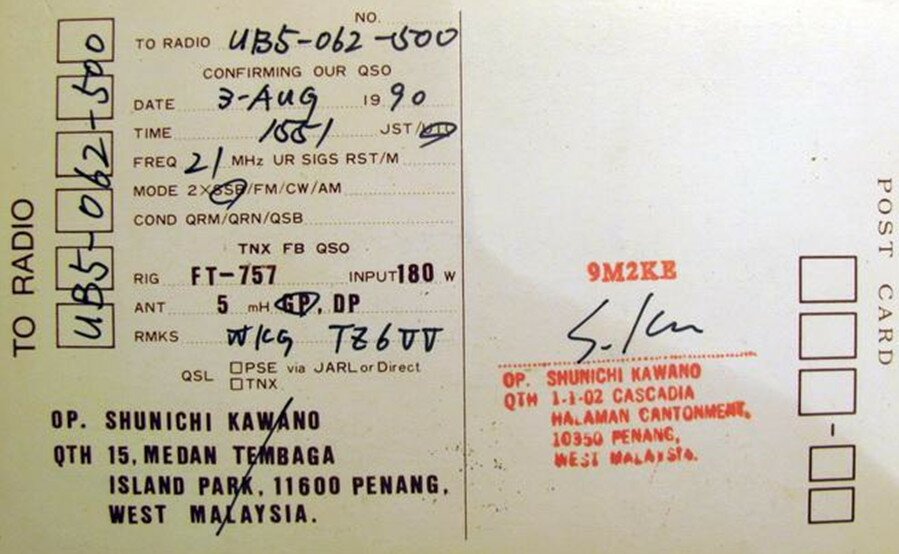 TO RADIO UB5-062-500
NO.
TO RADIO UB5-062-500
CONFIRMING OUR QSO
DATE 3-AUG 1990
TIME 1551 JST/UTC
FREQ 21 MHz UR SIGS RST/M
MODE 2×SSB/FM/CW/AM
COND QRM/QRN/QSB
TNX FB QSO
RIG FT-757 INPUT 180 W
ANT 5 mH GP, DP
RMKS WKG TZ6VV
QSL □PSE via JARL or Direct
□TNX
OP. SHUNICHI KAWANO
QTH 15, MEDAN TEMBAGA
ISLAND PARK, 11600 PENANG,
WEST MALAYSIA.
POST CARD
9M2KE
OP. SHUNICHI KAWANO
QTH 1-1-02 CASCADIA
HALAMAN CANTONMENT,
10350 PENANG,
WEST MALAYSIA.